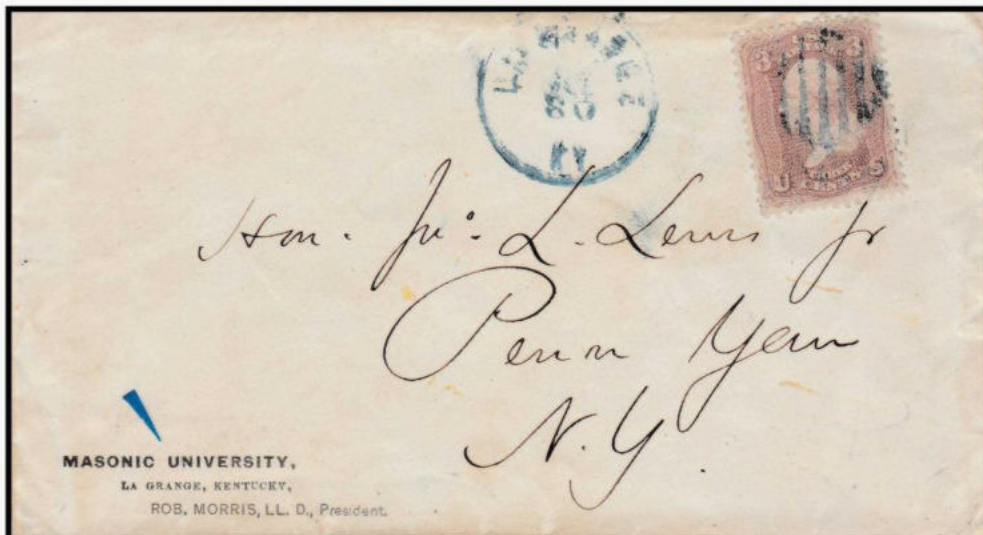 LA GRANGE
KY
3 3
U S
Hon. Jno. L. Lewis Jr
Penn Yan
N.Y.
MASONIC UNIVERSITY,
LA GRANGE, KENTUCKY,
ROB. MORRIS, LL. D., President.